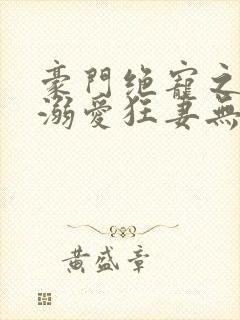 豪門绝寵之
溺愛狂妻無
黃盛章